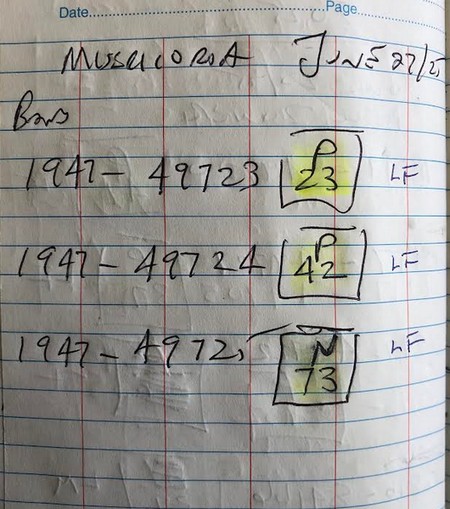 Date Page
JUNE 27/25
1947- 49723 P 23 LF
1947- 49724 P 42 LF
1947- 4972 N 73 LF